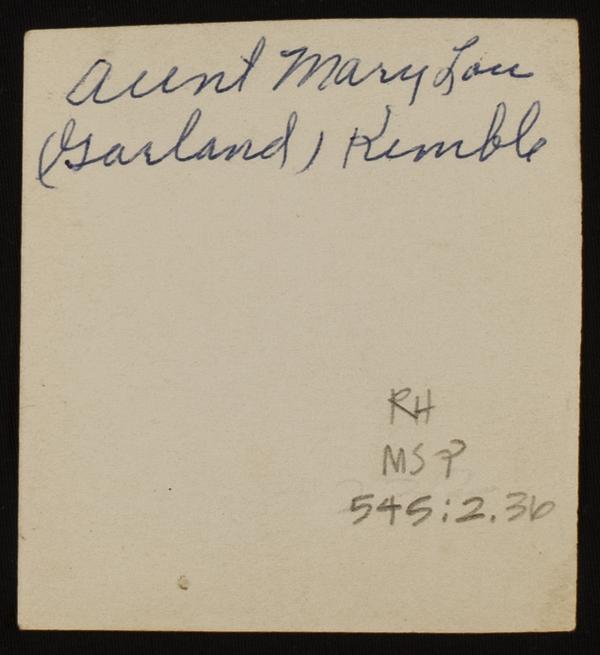 Aunt Mary Lou
(Garland) Kimble
RH
MS P
545:2.36